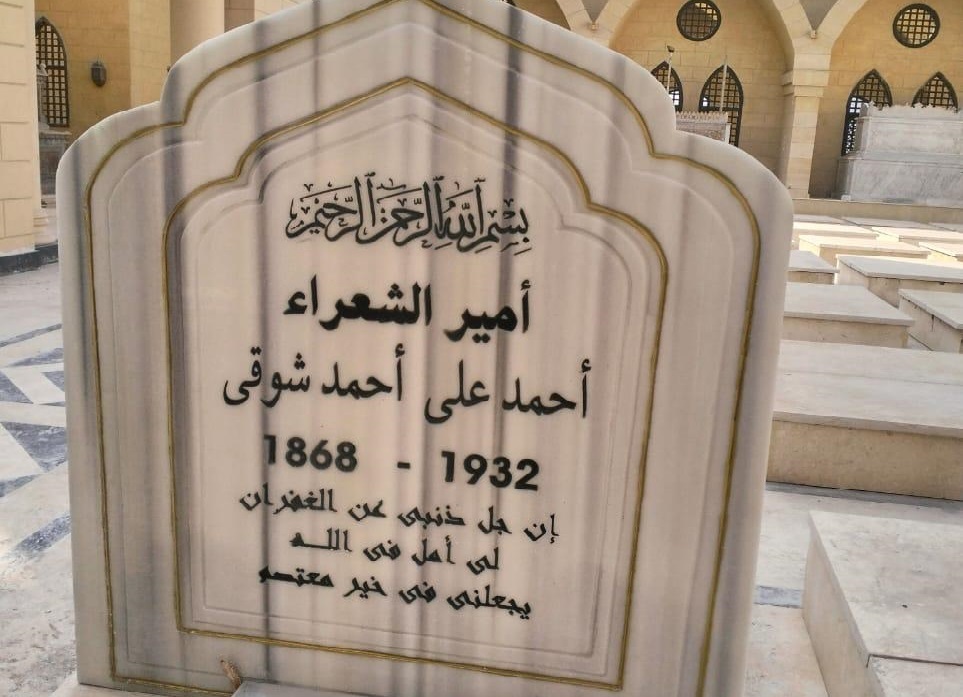 بسم الله الرحمن الرحيم
أمير الشعراء
أحمد على أحمد شوقى
1868 - 1932
إن جل ذنبى عن الغفران
لى أمل فى الله
يجعلنى فى خير معتصم